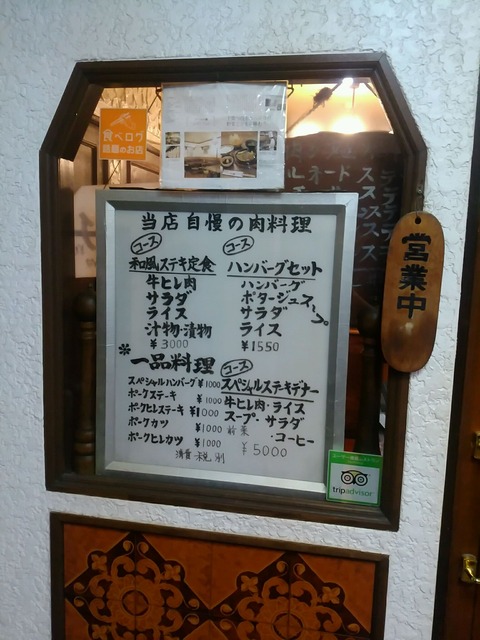 食べログ
掲載のお店
当店自慢の肉料理
コース
和風ステキ定食
牛ヒレ肉
サラダ
ライス
汁物・漬物
¥3000
コース
ハンバーグセット
ハンバーグ
ポタージュスープ
サラダ
ライス
¥1550
*一品料理
スペシャルハンバーグ ¥1000
ポークステーキ ¥1000
ポークヒレステーキ ¥1000
ポークカツ ¥1000
ポークヒレカツ ¥1000
消費税別
コース
スペシャルステキデナー
牛ヒレ肉・ライス
スープ・サラダ
前菜・コーヒー
¥5000
営業中
tripadvisor